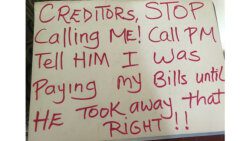 CREDITORS, STOP
Calling ME! Call PM
Tell HIM I Was
Paying my Bills until
HE TOOK away that
RIGHT!!